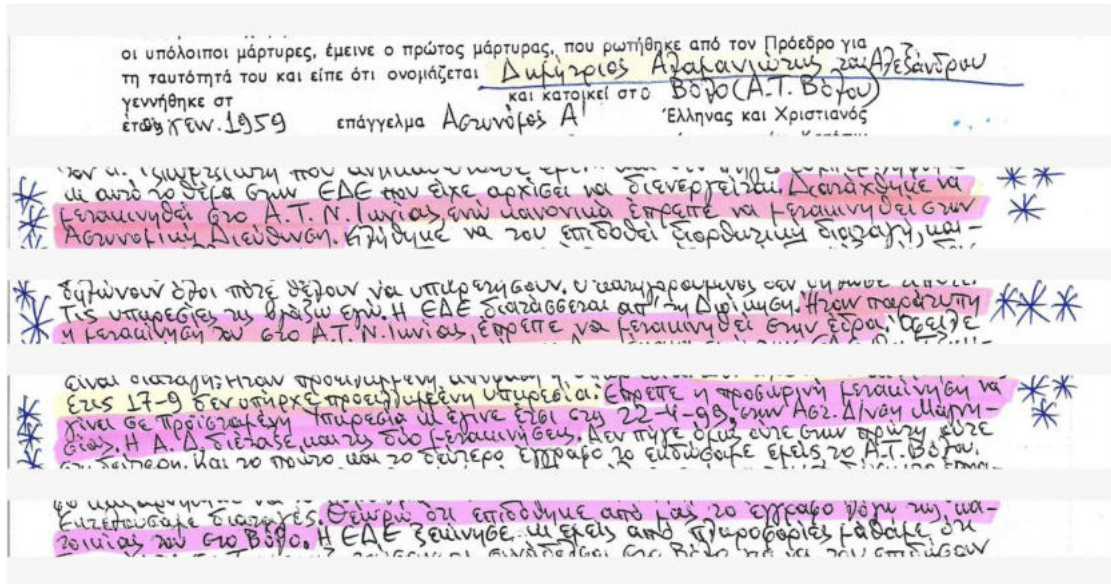 οι υπόλοιποι μάρτυρες, έμεινε ο πρώτος μάρτυρας, που ρωτήθηκε από τον Πρόεδρο για
τη ταυτότητά του και είπε ότι ονομάζεται Δημήτριος Αλαμανιώτης του Αλεξάνδρου
γεννήθηκε στ και κατοικεί στο Βόλο (Α.Τ. Βόλου)
ετους γεν. 1959 επάγγελμα Αστυνόμος Α' Έλληνας και Χριστιανός
κι αυτό το θέμα στην ΕΔΕ που είχε αρχίσει να διενεργείται. Διατάχθηκε να
μετακινηθεί στο Α.Τ. Ν. Ιωνίας, ενώ κανονικά έπρεπε να μετακινηθεί στην
Αστυνομική Διεύθυνση. Κλήθηκε να του επιδοθεί διορθωτική διαταγή, και-
δηλώνουν όλοι πότε θέλουν να υπηρετήσουν. Ο κατηγορούμενος δεν
Τις υπηρεσίες τις βγάζω εγώ. Η ΕΔΕ διατάσσεται απ' τη Διοίκηση. Ήταν παράτυπη
η μετακίνηση του στο Α.Τ. Ν. Ιωνίας, έπρεπε να μετακινηθεί στην έδρα. Όφειλε
είναι διαταγή. Ήταν προειλημμένη
στις 17-9 δεν υπήρχε προειλημμένη υπηρεσία. Έπρεπε η προσωρινή μετακίνηση να
γίνει σε προϊσταμένη Υπηρεσία κι έγινε έτσι στη 22-4-99, στην Αστ. Δ/νση Μαγνη-
σίας. Η Α.Δ. διέταξε και τις δύο μετακινήσεις. Δεν πήγε όμως ούτε στην πρώτη ούτε
στη δεύτερη. Και το πρώτο και το δεύτερο έγγραφο το εκδώσαμε εμείς το Α.Τ. Βόλου.
Εκτελούσαμε διαταγές. Θεωρώ ότι επιδόθηκε από μας το έγγραφο λόγω της κα-
τοικίας του στο Βόλο. Η ΕΔΕ ξεκίνησε κι εμείς από πληροφορίες μάθαμε, ότι